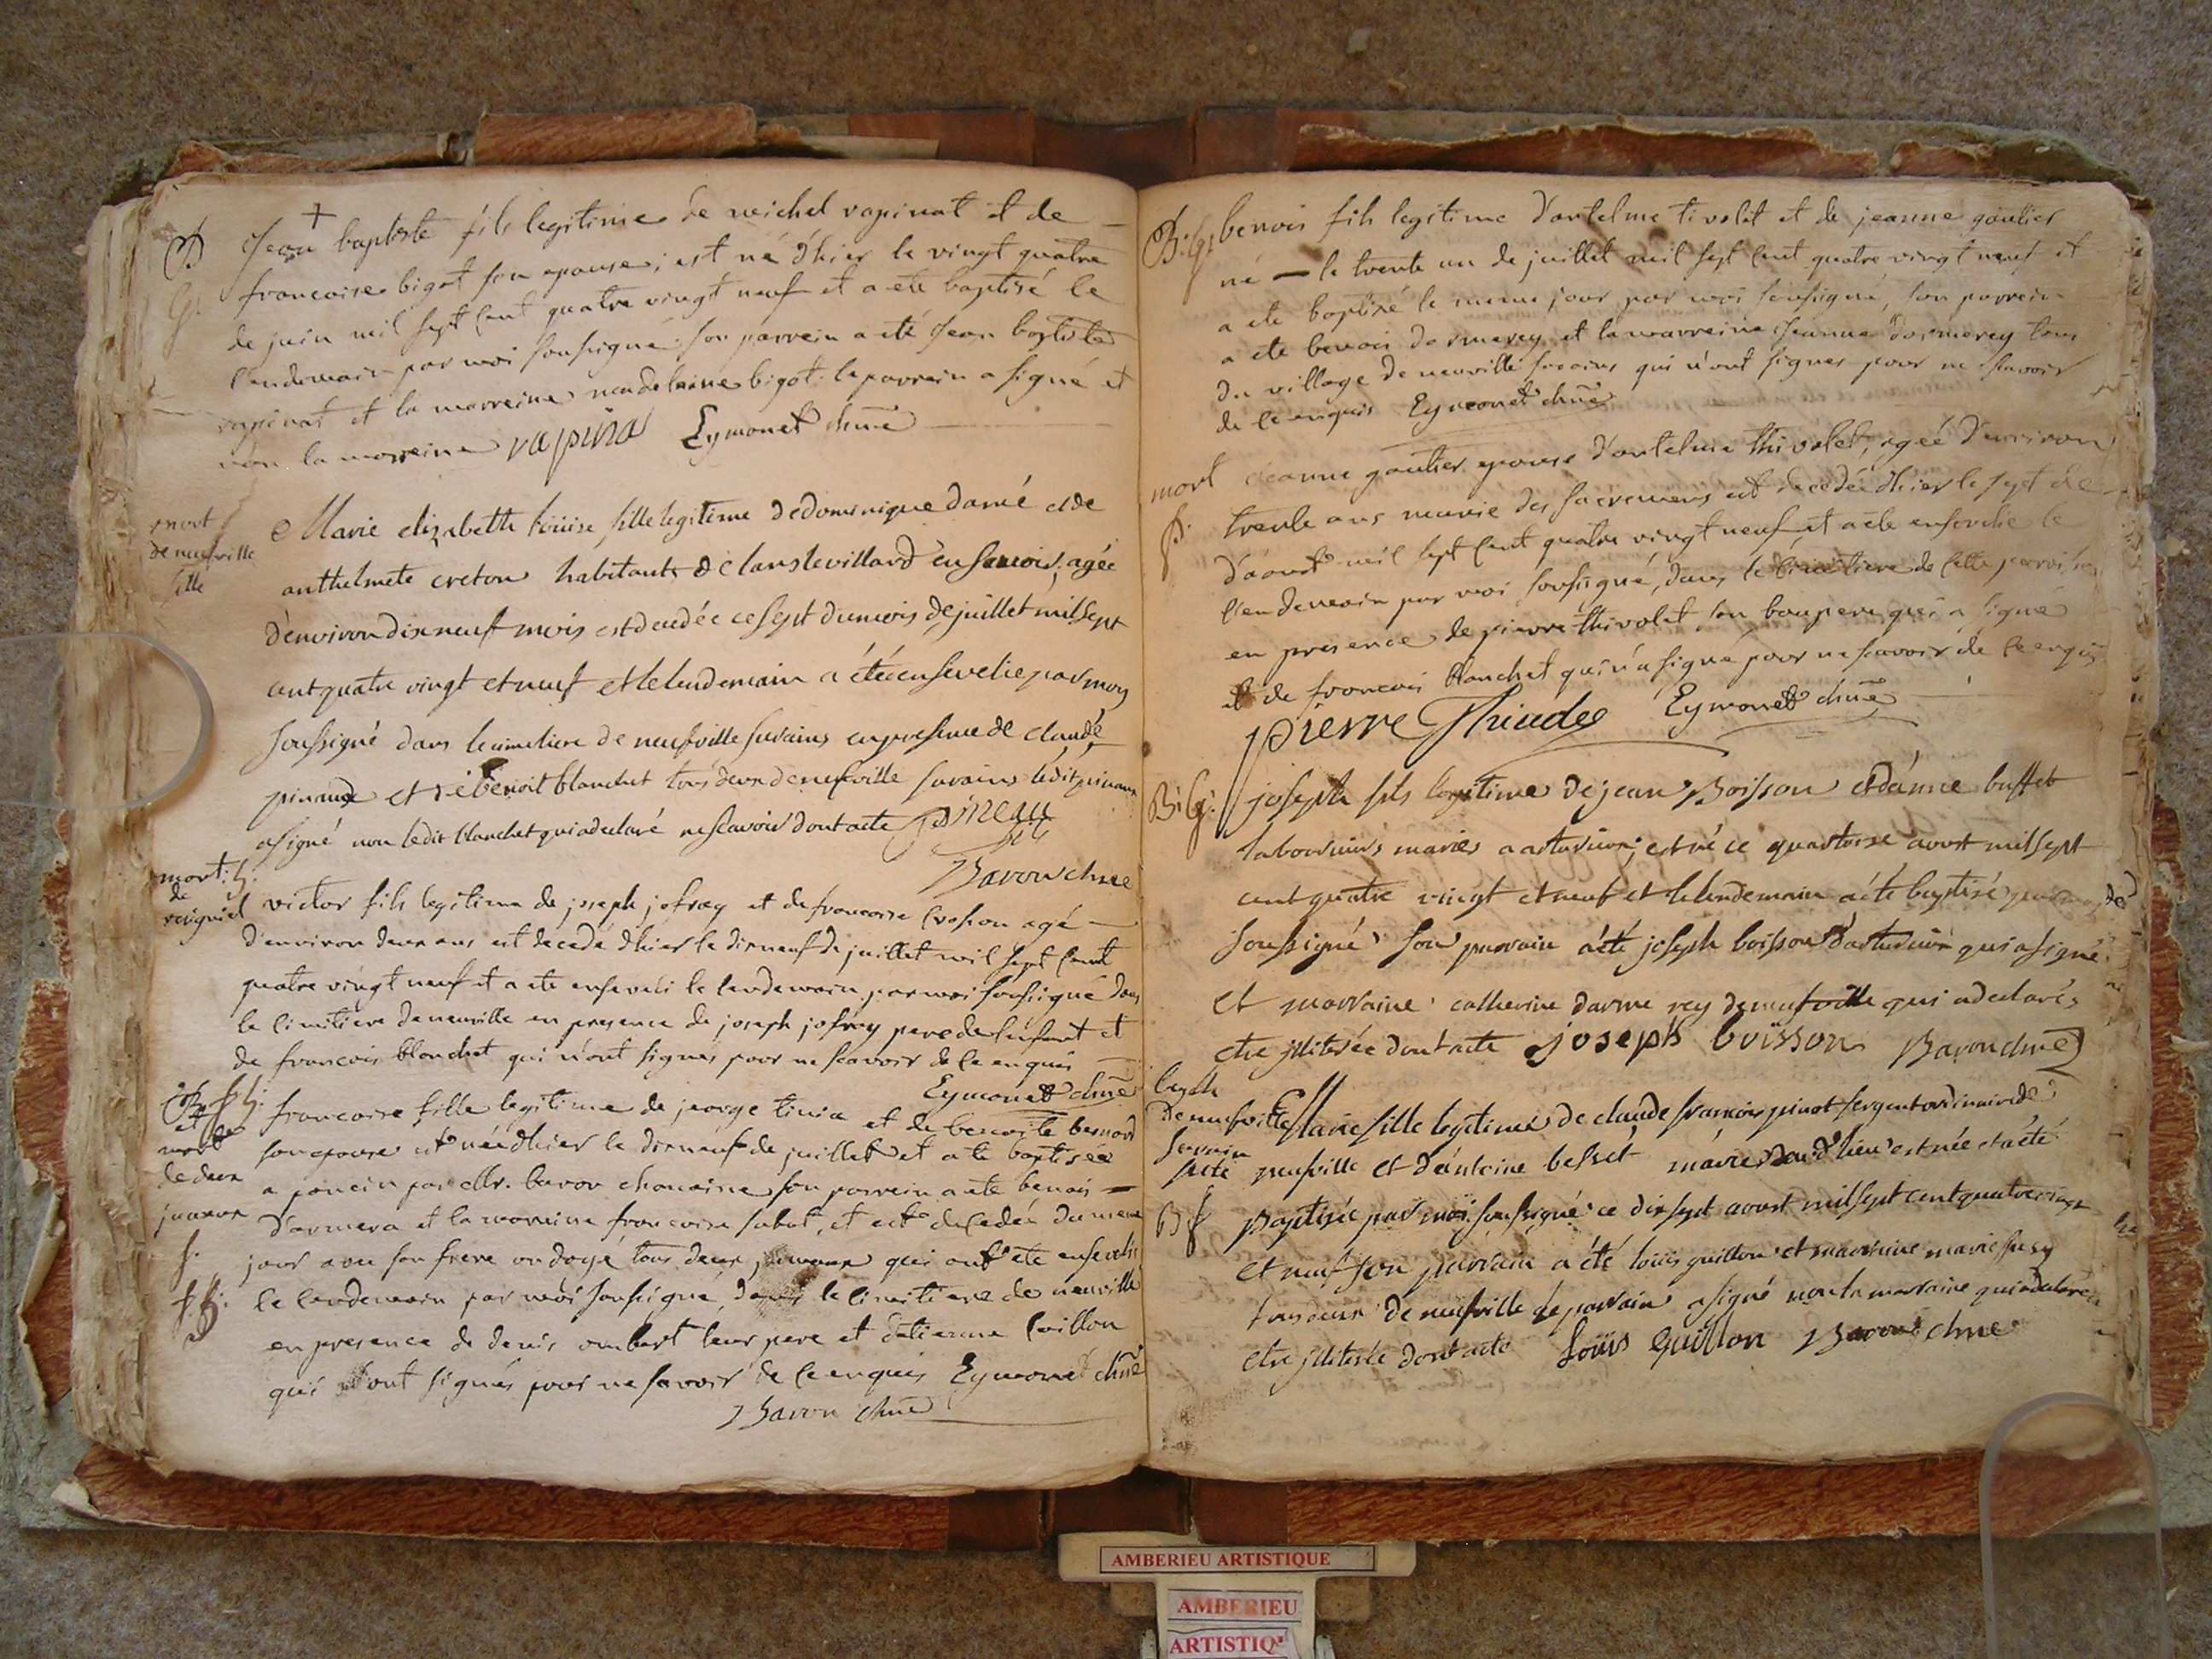 B
G.
+
Jean baptiste fils legitime de michel rapinat et de
francoise bigot son epouse, est né d'hier le vingt quatre
de juin mil sept cent quatre vingt neuf et a ete baptisé le
lendemain par moi soussigné son parrein a eté Jean baptiste
rapinat et la marreine bigot. le parrein a signé et
non la marreine rapina Eymonet chne
mort
de neufville
fille
Marie elizabeth loüise fille legitime de dominique damé et de
anthelmete creton habitants de lanslevillard en savois, agée
d'environ dix neuf mois est decedée ce sept du mois de juillet mil sept
cent quatre vingt et neuf et le lendemain a été ensevelie par moy
soussigné dans le cimetiere de neufville surains en presence de claude
pinaud et de benoit blanchet tous deux de neufville surains ledit pinaud
a signé non ledit blanchet qui a declaré ne scavoir dont acte pineau
Baron chne
mort: g.
de
victor fils legitime de joseph jofray et de francoise croson agé
d'environ deux ans est decedé d'hier le dix neuf de juillet mil sept cent
quatre vingt neuf et a ete enseveli le lendemain par moi soussigné dans
le cimitiere de neuville en presence de joseph jofray pere de l'enfant et
de francois blanchet qui n'ont signés pour ne scavoir de ce enquis
Eymonet chne
et
mort
de deux
jumeaux
f.
francoise fille legitime de jeorge et de benoite bernard
son epouse est née d'hier le dix neuf de juillet et a ete baptisée
a poncin par Mr. baron chanoine son parrein a ete benois
d'armera et la marreine francoise sabot, et est decedée du meme
jour avec son frere ondoyé tous deux jumeaux qui ont ete ensevelis
le lendemain par moi soussigné, dans le cimitiere de neuville
en presence de denis ombert leur pere et d'etienne
qui n'ont signés pour ne savoir de ce enquis Eymonet chne
Baron chne
B. G.
benois fils legitime d'antelme tivolet et de jeanne gautier
né le trente un de juillet mil sept cent quatre vingt neuf et
a ete baptisé le meme jour par moi soussigné, son parrein
a ete benois dormerey et la marreine jeanne dormerey tous
du village de neuville surains qui n'ont signés pour ne scavoir
de ce enquis Eymonet chne
mort
f.
jeanne gautier epouse d'antelme thivolet, agée d'environ
trente ans munie des sacremens est decedée d'hier le sept de
d'aoust mil sept cent quatre vingt neuf et a ete ensevelie le
lendemain par moi soussigné, dans le cimitiere de cette parroisse
en presence de pierre thivolet son beau pere qui a signé
et de francois blanchet qui n'a signé pour ne scavoir de ce enquis
pierre Eymonet chne
B. G.
joseph fils legitime de jean Boisson et d'anne buffet
laboureurs mariés a; est né ce quatorze aoust mil sept
cent quatre vingt et neuf et le lendemain a été baptisé par moy
soussigné son parrain a été joseph boisson qui a signé
et marraine catherine darme rey de neufville qui a declarés
etre illiterée dont acte joseph boïsson Baron chne
bapt
de neufville
surain
B f
Marie fille legitime de claude francois pinot sergent ordinaire de
neufville et d'antoine besset mariés dud lieu est née et a été
Baptisée par moi soussigné ce dix sept aoust mil sept cent quatre vingt
et neuf son parrain a été loüis guillon et marraine marie
tous deux de neufville le parrain a signé non la marraine qui a declaré
etre illiterée dont acte Loüis Guillon Baron chne
AMBERIEU ARTISTIQUE
AMBERIEU
ARTISTIQ